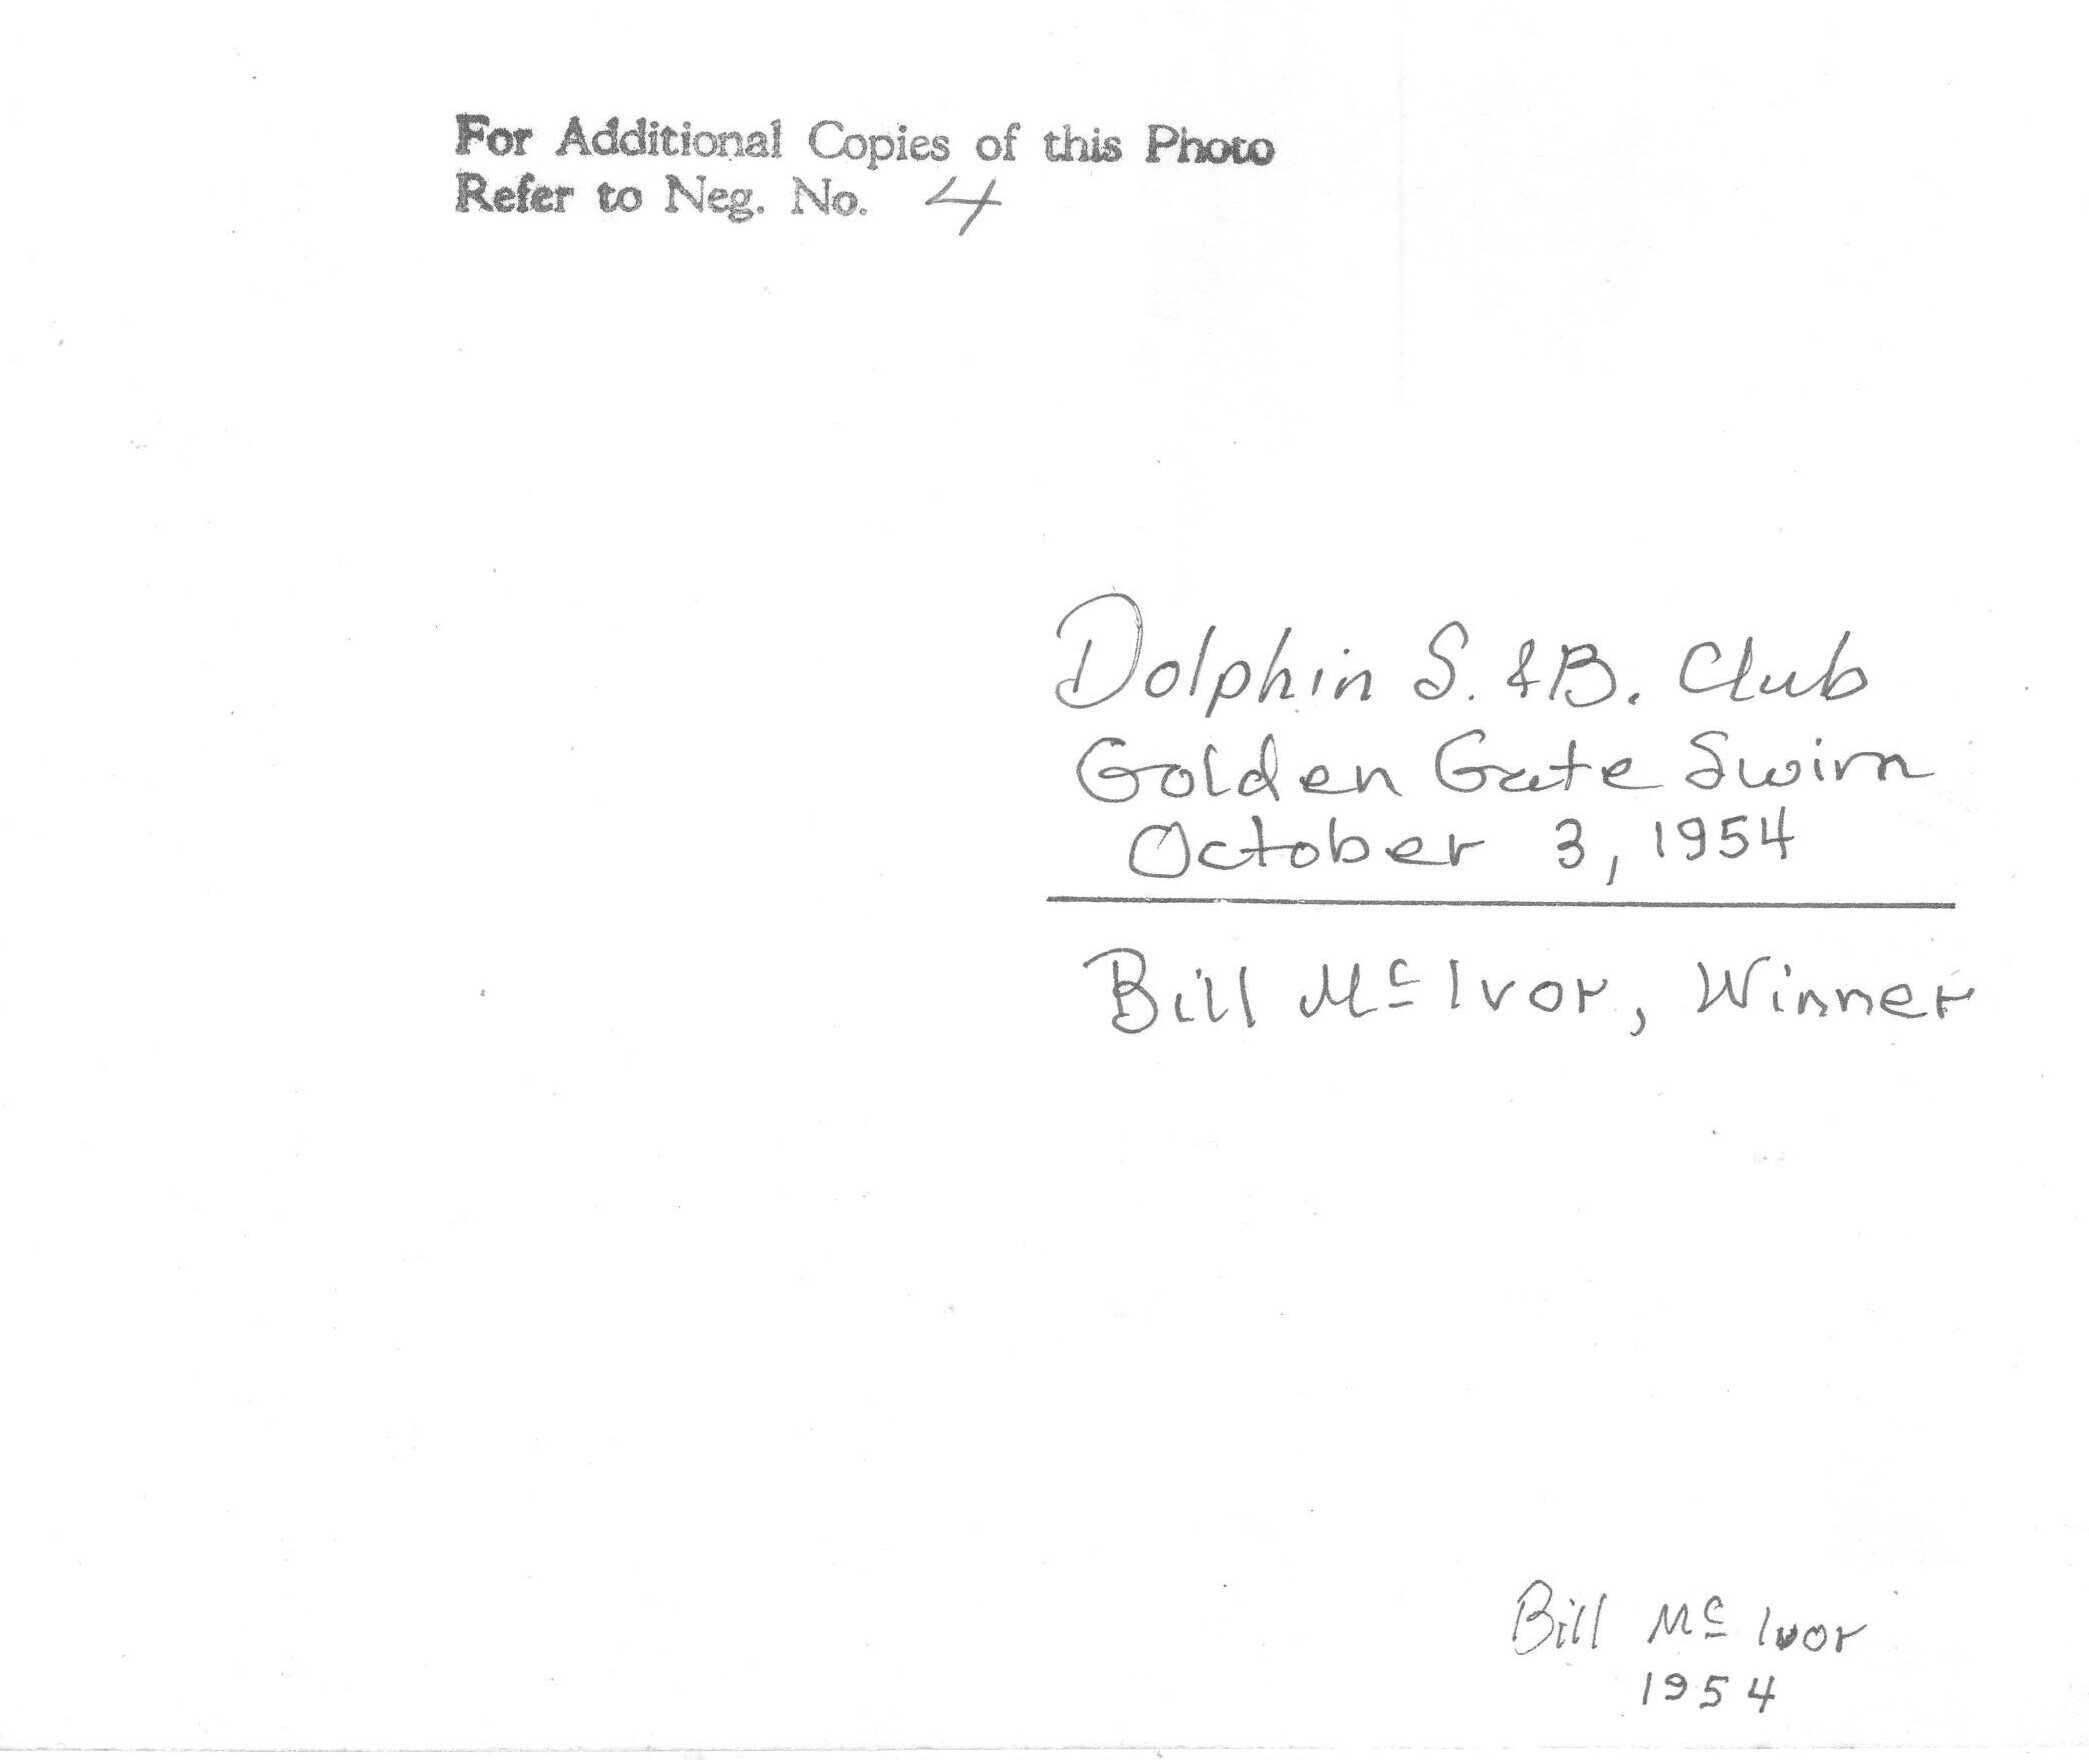 For Additional Copies of this Photo
Refer to Neg. No. 4
Dolphin S. & B. Club
Golden Gate Swim
October 3, 1954
Bill Mc Ivor, Winner
Bill Mc Ivor
1954